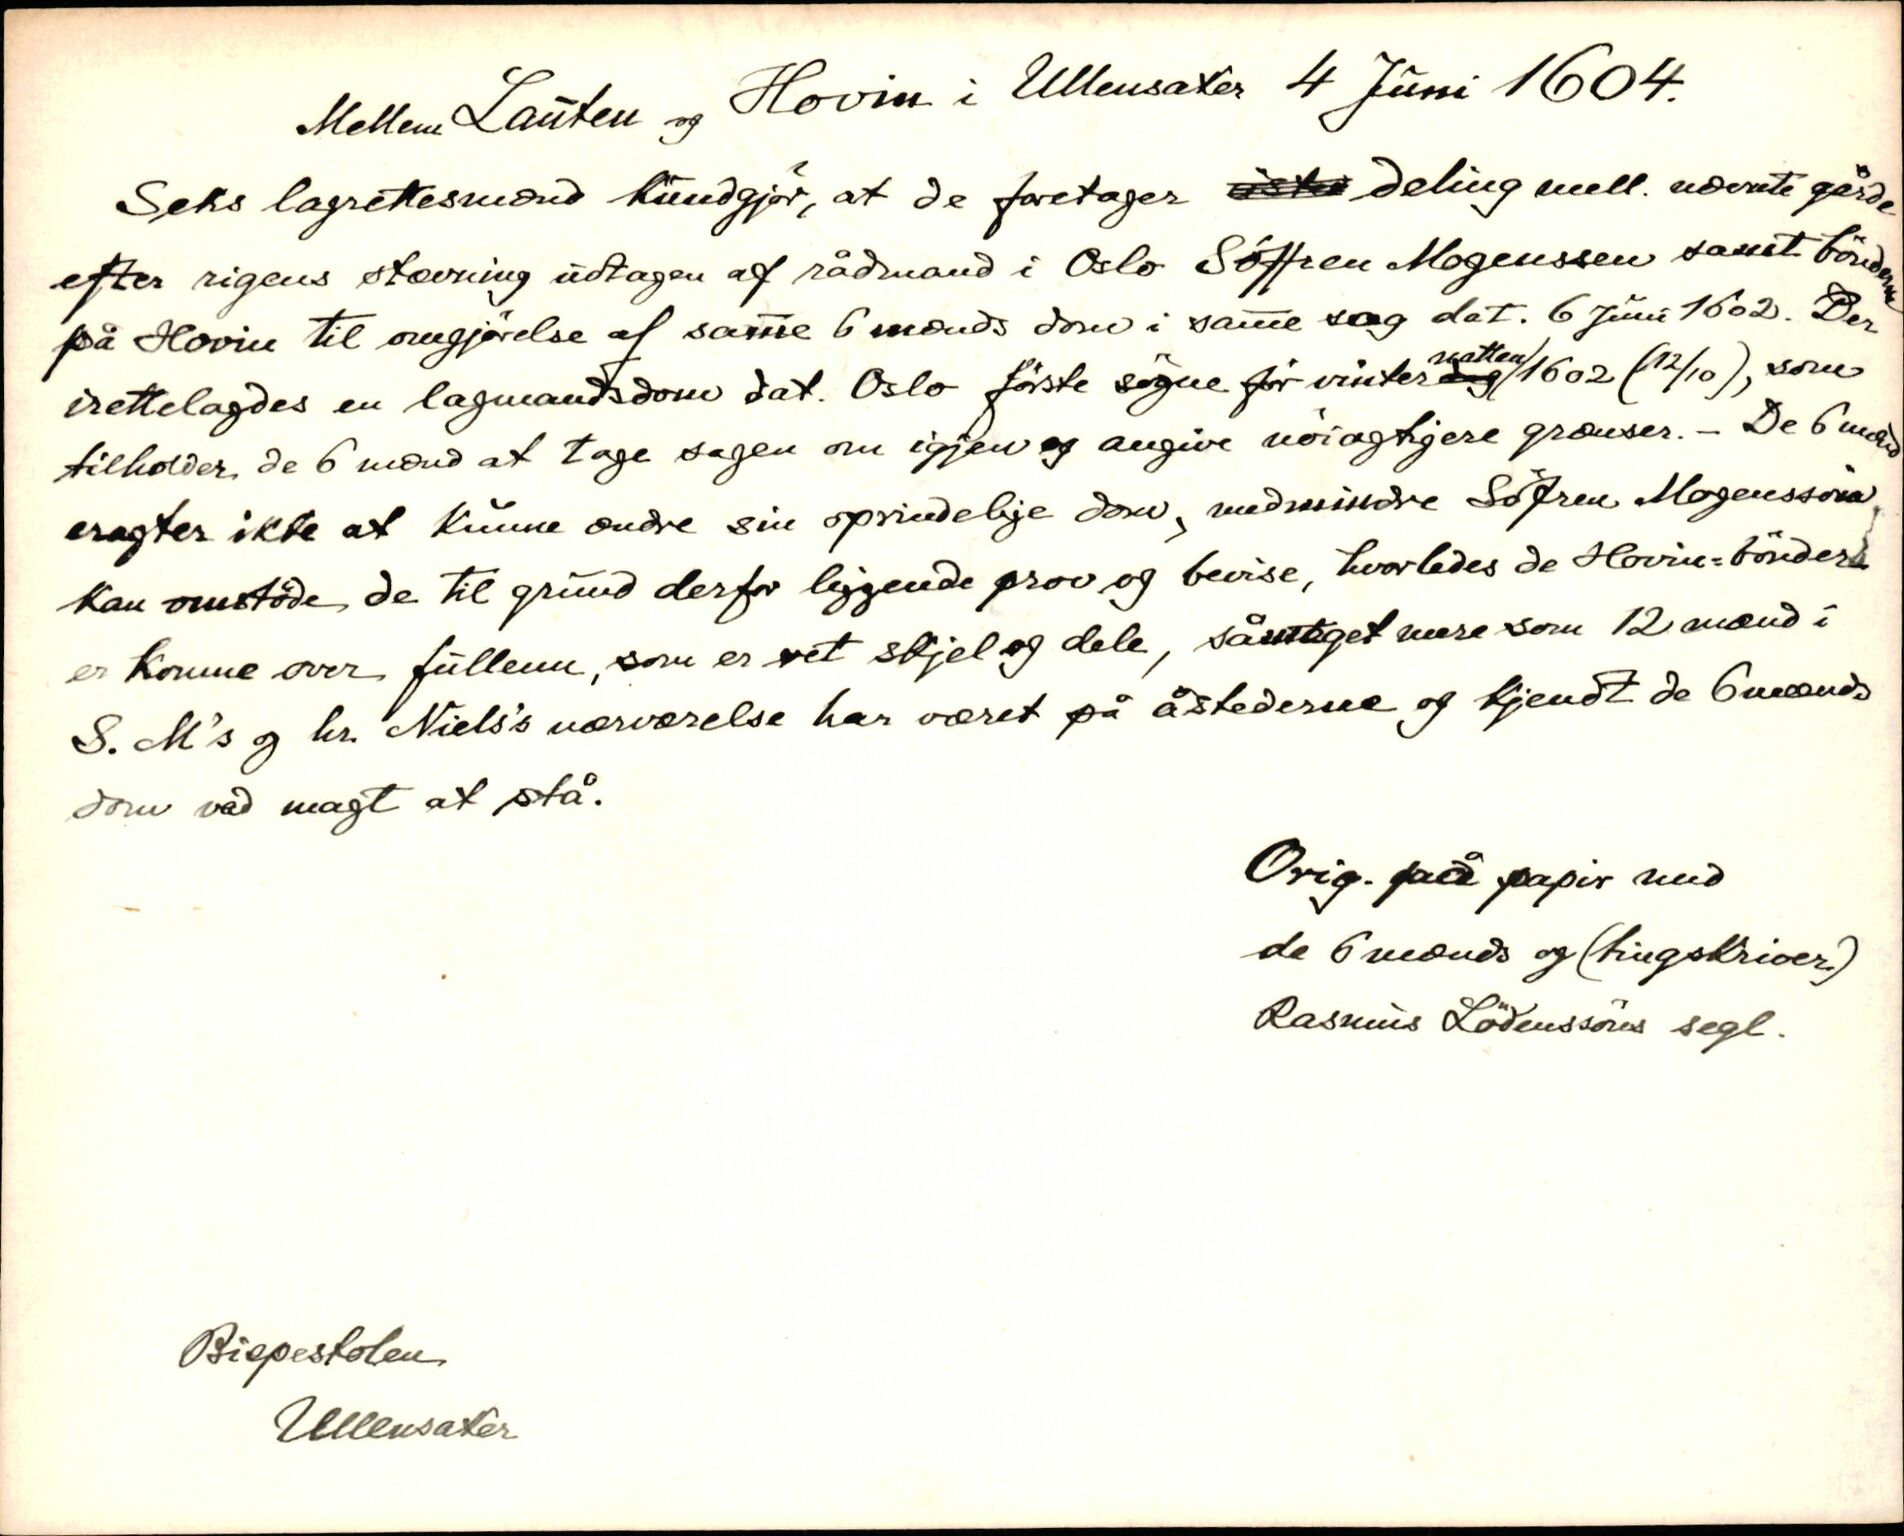 Mellem Lauten og Hovin i Ullensaker 4 Juni 1604.
Seks lagrettesmænd kundgjør, at de foretager deling mell. nævnte gårde
efter rigens stævning udtagen af rådmand i Oslo Söffren Mogenssen samt bönderne
på Hovin til omgjörelse af sam̅e 6 mænds dom i sam̅e sag dat. 6 Juni 1602. Der
irettelagdes en lagmandsdom dat. Oslo förste søgne for vinternatten 1602 (12/10), som
tilholder de 6 mænd at tage sagen om igjen og angive nöiagtigere grænser. – De 6 mænd
eragter ikke at kunne ændre sin oprindelige dom, medmindre Söfren Mogenssön
kan omstöde de til grund derfor liggende prov og bevise, hvorledes de Hovin-bönder
er komne over fullenn, som er ret skjel og dele, såmeget mere som 12 mænd i
S. M's og hr. Niels's nærværelse har været på åstederne og kjendt de 6 mænds
dom ved magt at stå.
Orig. på papir med
de 6 mænds og (tingskriver)
Rasmus Lödenssöns segl.
Bispestolen
Ullensaker